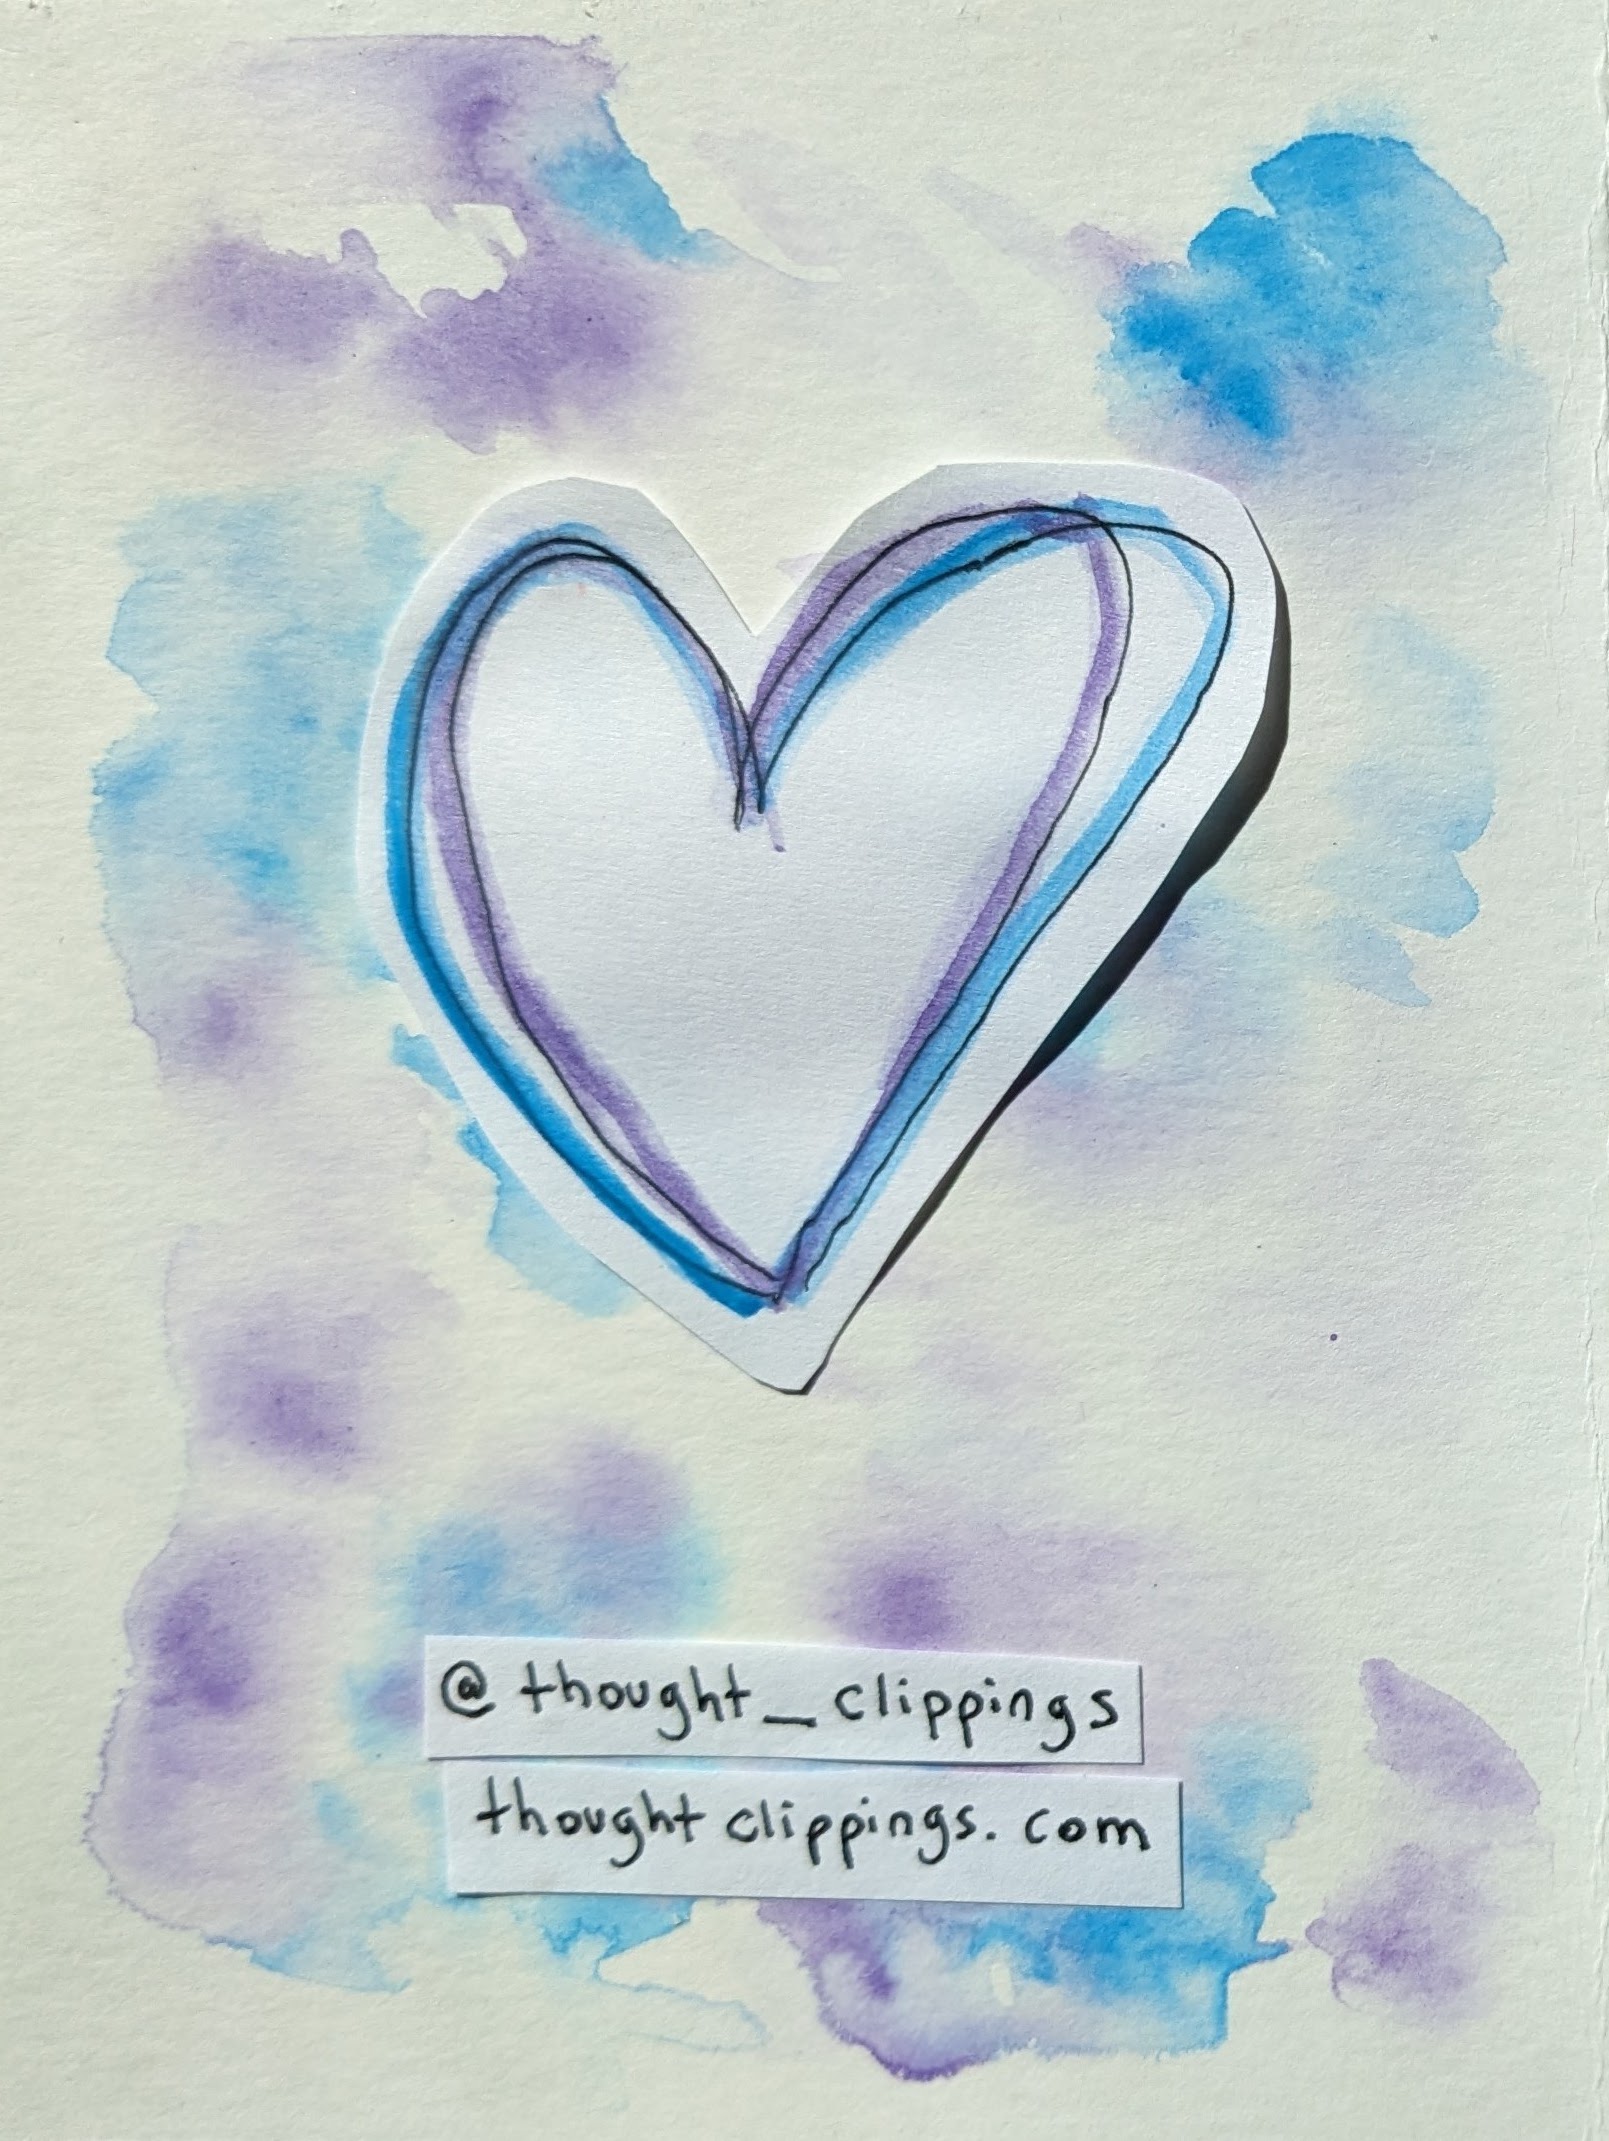 @thought_clippings
thoughtclippings.com